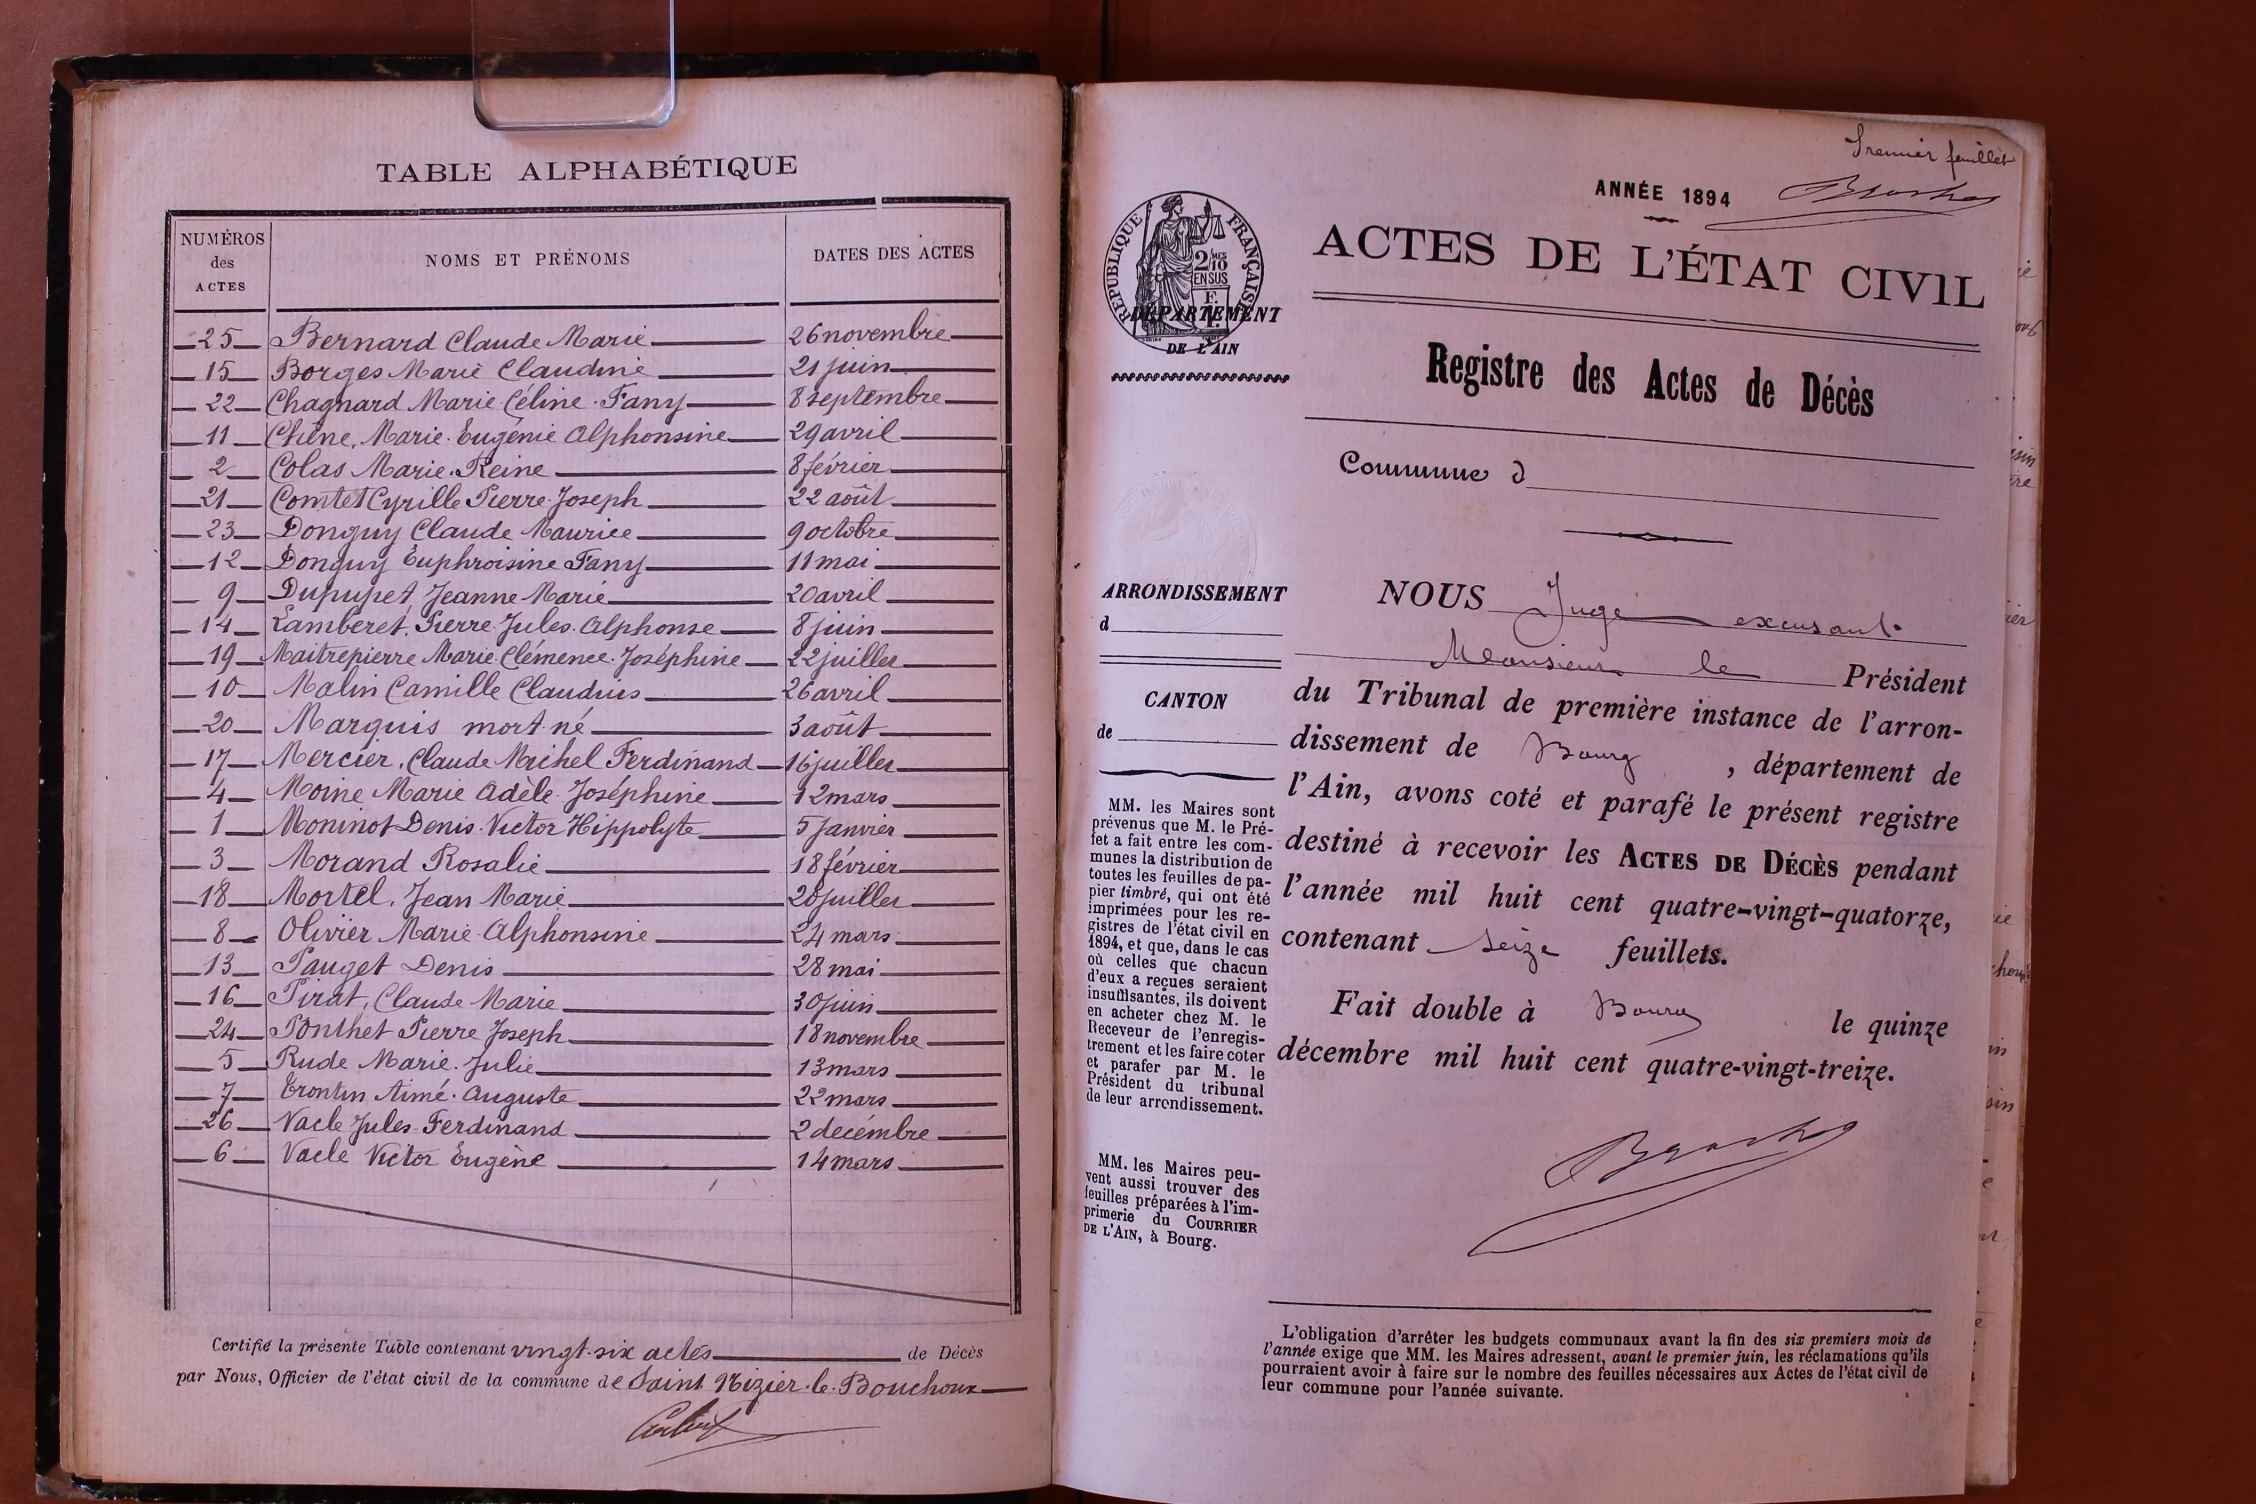 TABLE ALPHABÉTIQUE
NUMÉROS des ACTES NOMS ET PRÉNOMS DATES DES ACTES
25 Bernard Claude Marie 26 novembre
15 Borges Marie Claudine 21 juin
22 Chagnard Marie Céline Fany 8 septembre
11 Chêne, Marie Eugénie Alphonsine 29 avril
2 Colas Marie Reine 8 février
21 Comtet Cyrille Pierre Joseph 22 août
23 Donguy Claude Maurice 9 octobre
12 Donguy Euphroisine Fany 11 mai
9 Dupupet, Jeanne Marie 20 avril
14 Lamberet, Pierre Jules Alphonse 8 juin
19 Maitrepierre Marie Clémence Joséphine 22 juillet
10 Malin Camille Claudius 26 avril
20 Marquis mort-né 3 août
17 Mercier, Claude Michel Ferdinand 16 juillet
4 Moine Marie Adèle Joséphine 12 mars
1 Moninot Denis Victor Hippolyte 5 Janvier
3 Morand Rosalie 18 février
18 Mortel, Jean Marie 20 juillet
8 Olivier Marie Alphonsine 24 mars
13 Pauget Denis 28 mai
16 Pirat, Claude Marie 30 juin
24 Ponthet Pierre Joseph 18 novembre
5 Rude Marie Julie 13 mars
7 Trontin Aimé Auguste 22 mars
26 Vacle Jules Ferdinand 2 decémbre
6 Vacle Victor Eugène 14 mars
Certifié la présente Table contenant vingt-six actes de Décès
par Nous, Officier de l'état civil de la commune de Saint Nizier-le-Bouchoux
Premier feuillet
ANNÉE 1894
ACTES DE L'ÉTAT CIVIL
RÉPUBLIQUE FRANÇAISE
2/10 EN SUS
DÉPARTEMENT
DE L'AIN
Registre des Actes de Décès
Commune d
ARRONDISSEMENT
d
CANTON
de
MM. les Maires sont
prévenus que M. le Pré-
fet a fait entre les com-
munes la distribution de
toutes les feuilles de pa-
pier timbré, qui ont été
imprimées pour les re-
gistres de l'état civil en
1894, et que, dans le cas
où celles que chacun
d'eux a reçues seraient
insuffisantes, ils doivent
en acheter chez M. le
Receveur de l'enregis-
trement et les faire coter
et parafer par M. le
Président du tribunal
de leur arrondissement.
MM. les Maires peu-
vent aussi trouver des
feuilles préparées à l'im-
primerie du COURRIER
DE L'AIN, à Bourg.
NOUS Juge excusant
Monsieur le Président
du Tribunal de première instance de l'arron-
dissement de Bourg, département de
l'Ain, avons coté et parafé le présent registre
destiné à recevoir les ACTES DE DÉCÈS pendant
l'année mil huit cent quatre-vingt-quatorze,
contenant seize feuillets.
Fait double à Bourg le quinze
décembre mil huit cent quatre-vingt-treize.
L'obligation d'arrêter les budgets communaux avant la fin des six premiers mois de
l'année exige que MM. les Maires adressent, avant le premier juin, les réclamations qu'ils
pourraient avoir à faire sur le nombre des feuilles nécessaires aux Actes de l'état civil de
leur commune pour l'année suivante.